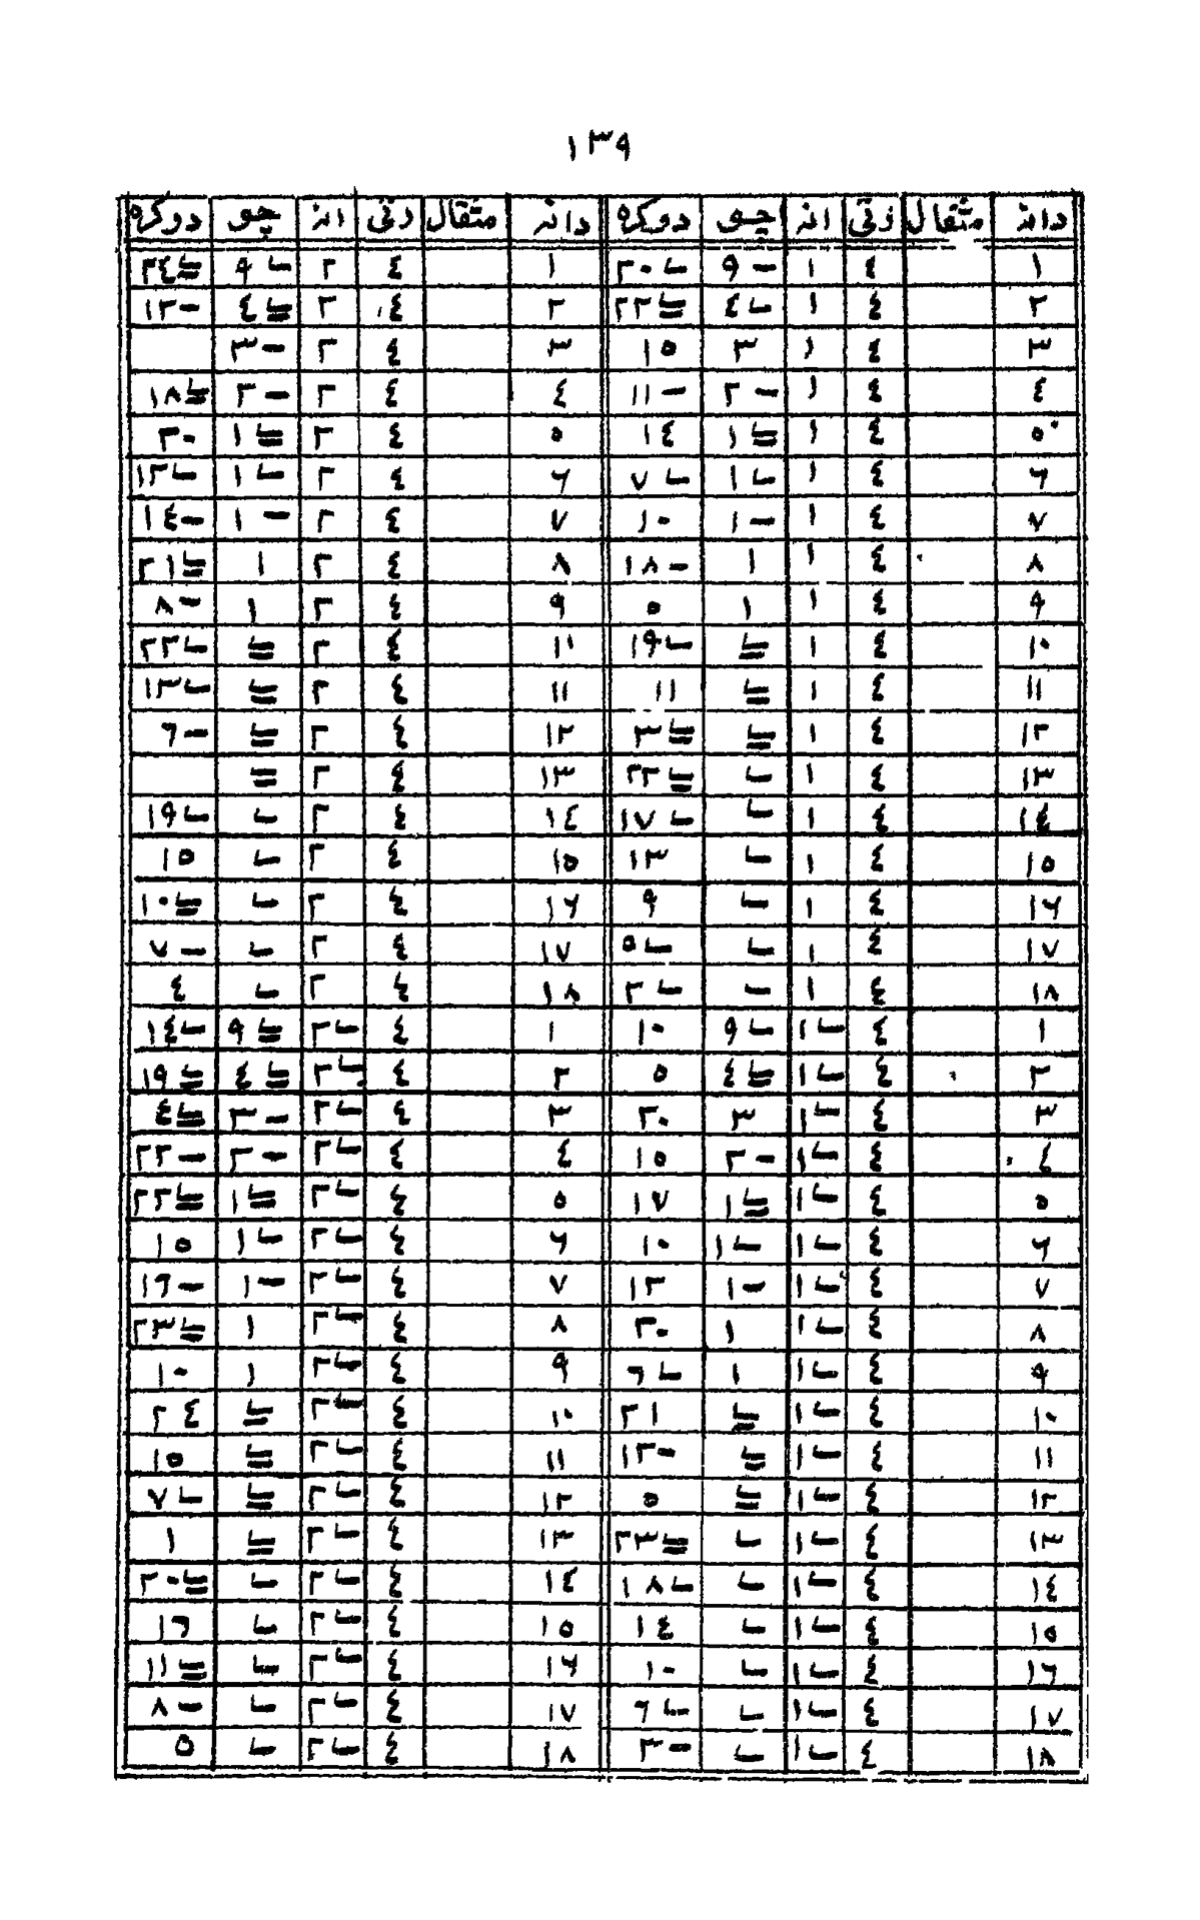 ١٣٩
دانه مثقال رتي انه چو دوكره دانه مثقال رتي انه چو دوكره
١ ٤ ١ ٩ - ٢٠ ١ ٤ ٢ ٩ ٢٤
٢ ٤ ١ ٤ ٢٢ ٢ ٤ ٢ ٤ ١٢ -
٣ ٤ ١ ٣ ١٥ ٣ ٤ ٢ ٣ -
٤ ٤ ١ ٢ - ١١ - ٤ ٤ ٢ ٢ - ١٨
٥ ٤ ١ ١ ١٤ ٥ ٤ ٢ ١ ٢٠
٦ ٤ ١ ١ ٧ ٦ ٤ ٢ ١ ١٢
٧ ٤ ١ ١ - ١٠ ٧ ٤ ٢ ١ - ١٤ -
٨ ٤ ١ ١ ١٨ - ٨ ٤ ٢ ١ ٢١
٩ ٤ ١ ١ ٥ ٩ ٤ ٢ ١ ٨ -
١٠ ٤ ١ ١٩ ١٠ ٤ ٢ ٢٢
١١ ٤ ١ ١١ ١١ ٤ ٢ ١٣
١٢ ٤ ١ ٣ ١٢ ٤ ٢ ٦ -
١٣ ٤ ١ ٢٢ ١٣ ٤ ٢
١٤ ٤ ١ ١٧ ١٤ ٤ ٢ ١٩
١٥ ٤ ١ ١٣ ١٥ ٤ ٢ ١٥
١٦ ٤ ١ ٩ ١٦ ٤ ٢ ١٠
١٧ ٤ ١ ٥ ١٧ ٤ ٢ ٧ -
١٨ ٤ ١ ٢ ١٨ ٤ ٢ ٤
١ ٤ ١ ٩ ١٠ ١ ٤ ٢ ٩ ١٤
٢ ٤ ١ ٤ ٥ ٢ ٤ ٢ ٤ ١٩
٣ ٤ ١ ٣ ٢٠ ٣ ٤ ٢ ٣ - ٤
٤ ٤ ١ ٢ - ١٥ ٤ ٤ ٢ ٢ - ٢٢ -
٥ ٤ ١ ١ ١٧ ٥ ٤ ٢ ١ ٢٢
٦ ٤ ١ ١ ١٠ ٦ ٤ ٢ ١ ١٥
٧ ٤ ١ ١ - ١٢ ٧ ٤ ٢ ١ - ١٦ -
٨ ٤ ١ ١ ٢٠ ٨ ٤ ٢ ١ ٢٣
٩ ٤ ١ ١ ٦ ٩ ٤ ٢ ١ ١٠
١٠ ٤ ١ ٢١ ١٠ ٤ ٢ ٢٤
١١ ٤ ١ ١٢ - ١١ ٤ ٢ ١٥
١٢ ٤ ١ ٥ ١٢ ٤ ٢ ٧
١٣ ٤ ١ ٢٣ ١٣ ٤ ٢ ١
١٤ ٤ ١ ١٨ ١٤ ٤ ٢ ٢٠
١٥ ٤ ١ ١٤ ١٥ ٤ ٢ ١٦
١٦ ٤ ١ ١٠ ١٦ ٤ ٢ ١١
١٧ ٤ ١ ٦ ١٧ ٤ ٢ ٨ -
١٨ ٤ ١ ٣ - ١٨ ٤ ٢ ٥